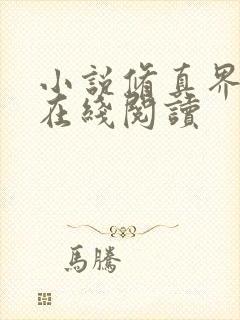 小說脩真界
在綫閱讀
馬騰